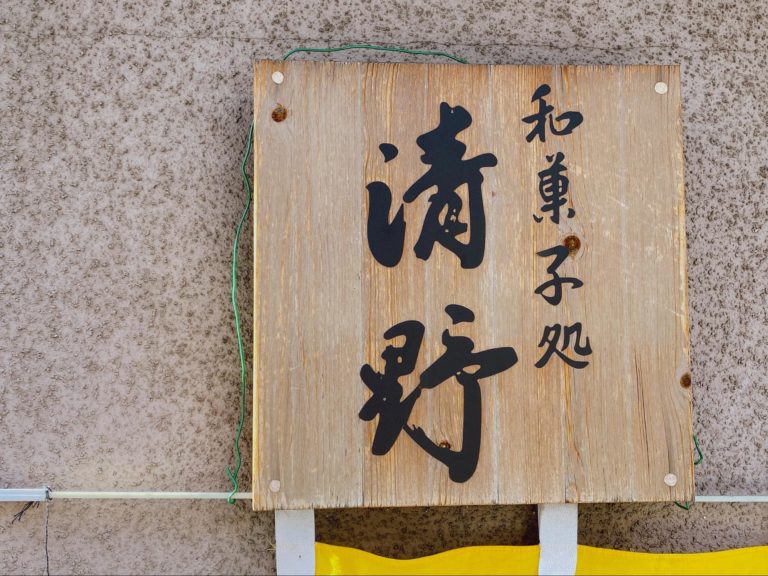 和菓子処
清野